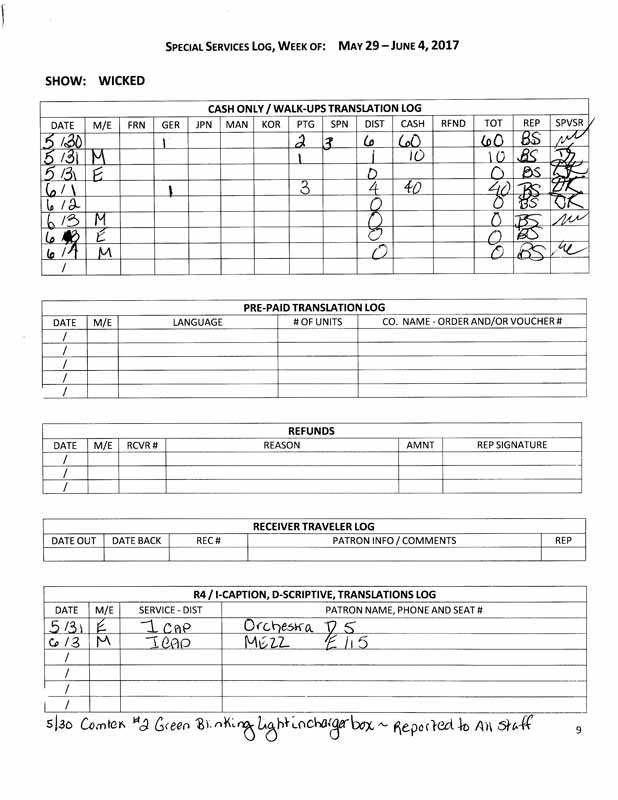 SPECIAL SERVICES LOG, WEEK OF: MAY 29 – JUNE 4, 2017
SHOW: WICKED
CASH ONLY / WALK-UPS TRANSLATION LOG
DATE M/E FRN GER JPN MAN KOR PTG SPN DIST CASH RFND TOT REP SPVSR
5/30 1 2 3 6 60 60 BS
5/31 M 1 1 10 10 BS
5/31 E 0 0 BS
6/1 1 3 4 40 40 BS OK
6/2 0 0 BS OK
6/3 M 0 0 BS
6/3 E 0 0 BS
6/4 M 0 0 BS
/
PRE-PAID TRANSLATION LOG
DATE M/E LANGUAGE # OF UNITS CO. NAME - ORDER AND/OR VOUCHER #
/
/
/
/
/
REFUNDS
DATE M/E RCVR # REASON AMNT REP SIGNATURE
/
/
/
RECEIVER TRAVELER LOG
DATE OUT DATE BACK REC # PATRON INFO / COMMENTS REP
R4 / I-CAPTION, D-SCRIPTIVE, TRANSLATIONS LOG
DATE M/E SERVICE - DIST PATRON NAME, PHONE AND SEAT #
5/31 E I CAP Orchestra D 5
6/3 M ICAP MEZZ E 115
/
/
/
/
5/30 Comtek #2 Green Blinking light in charger box ~ Reported to All Staff
9